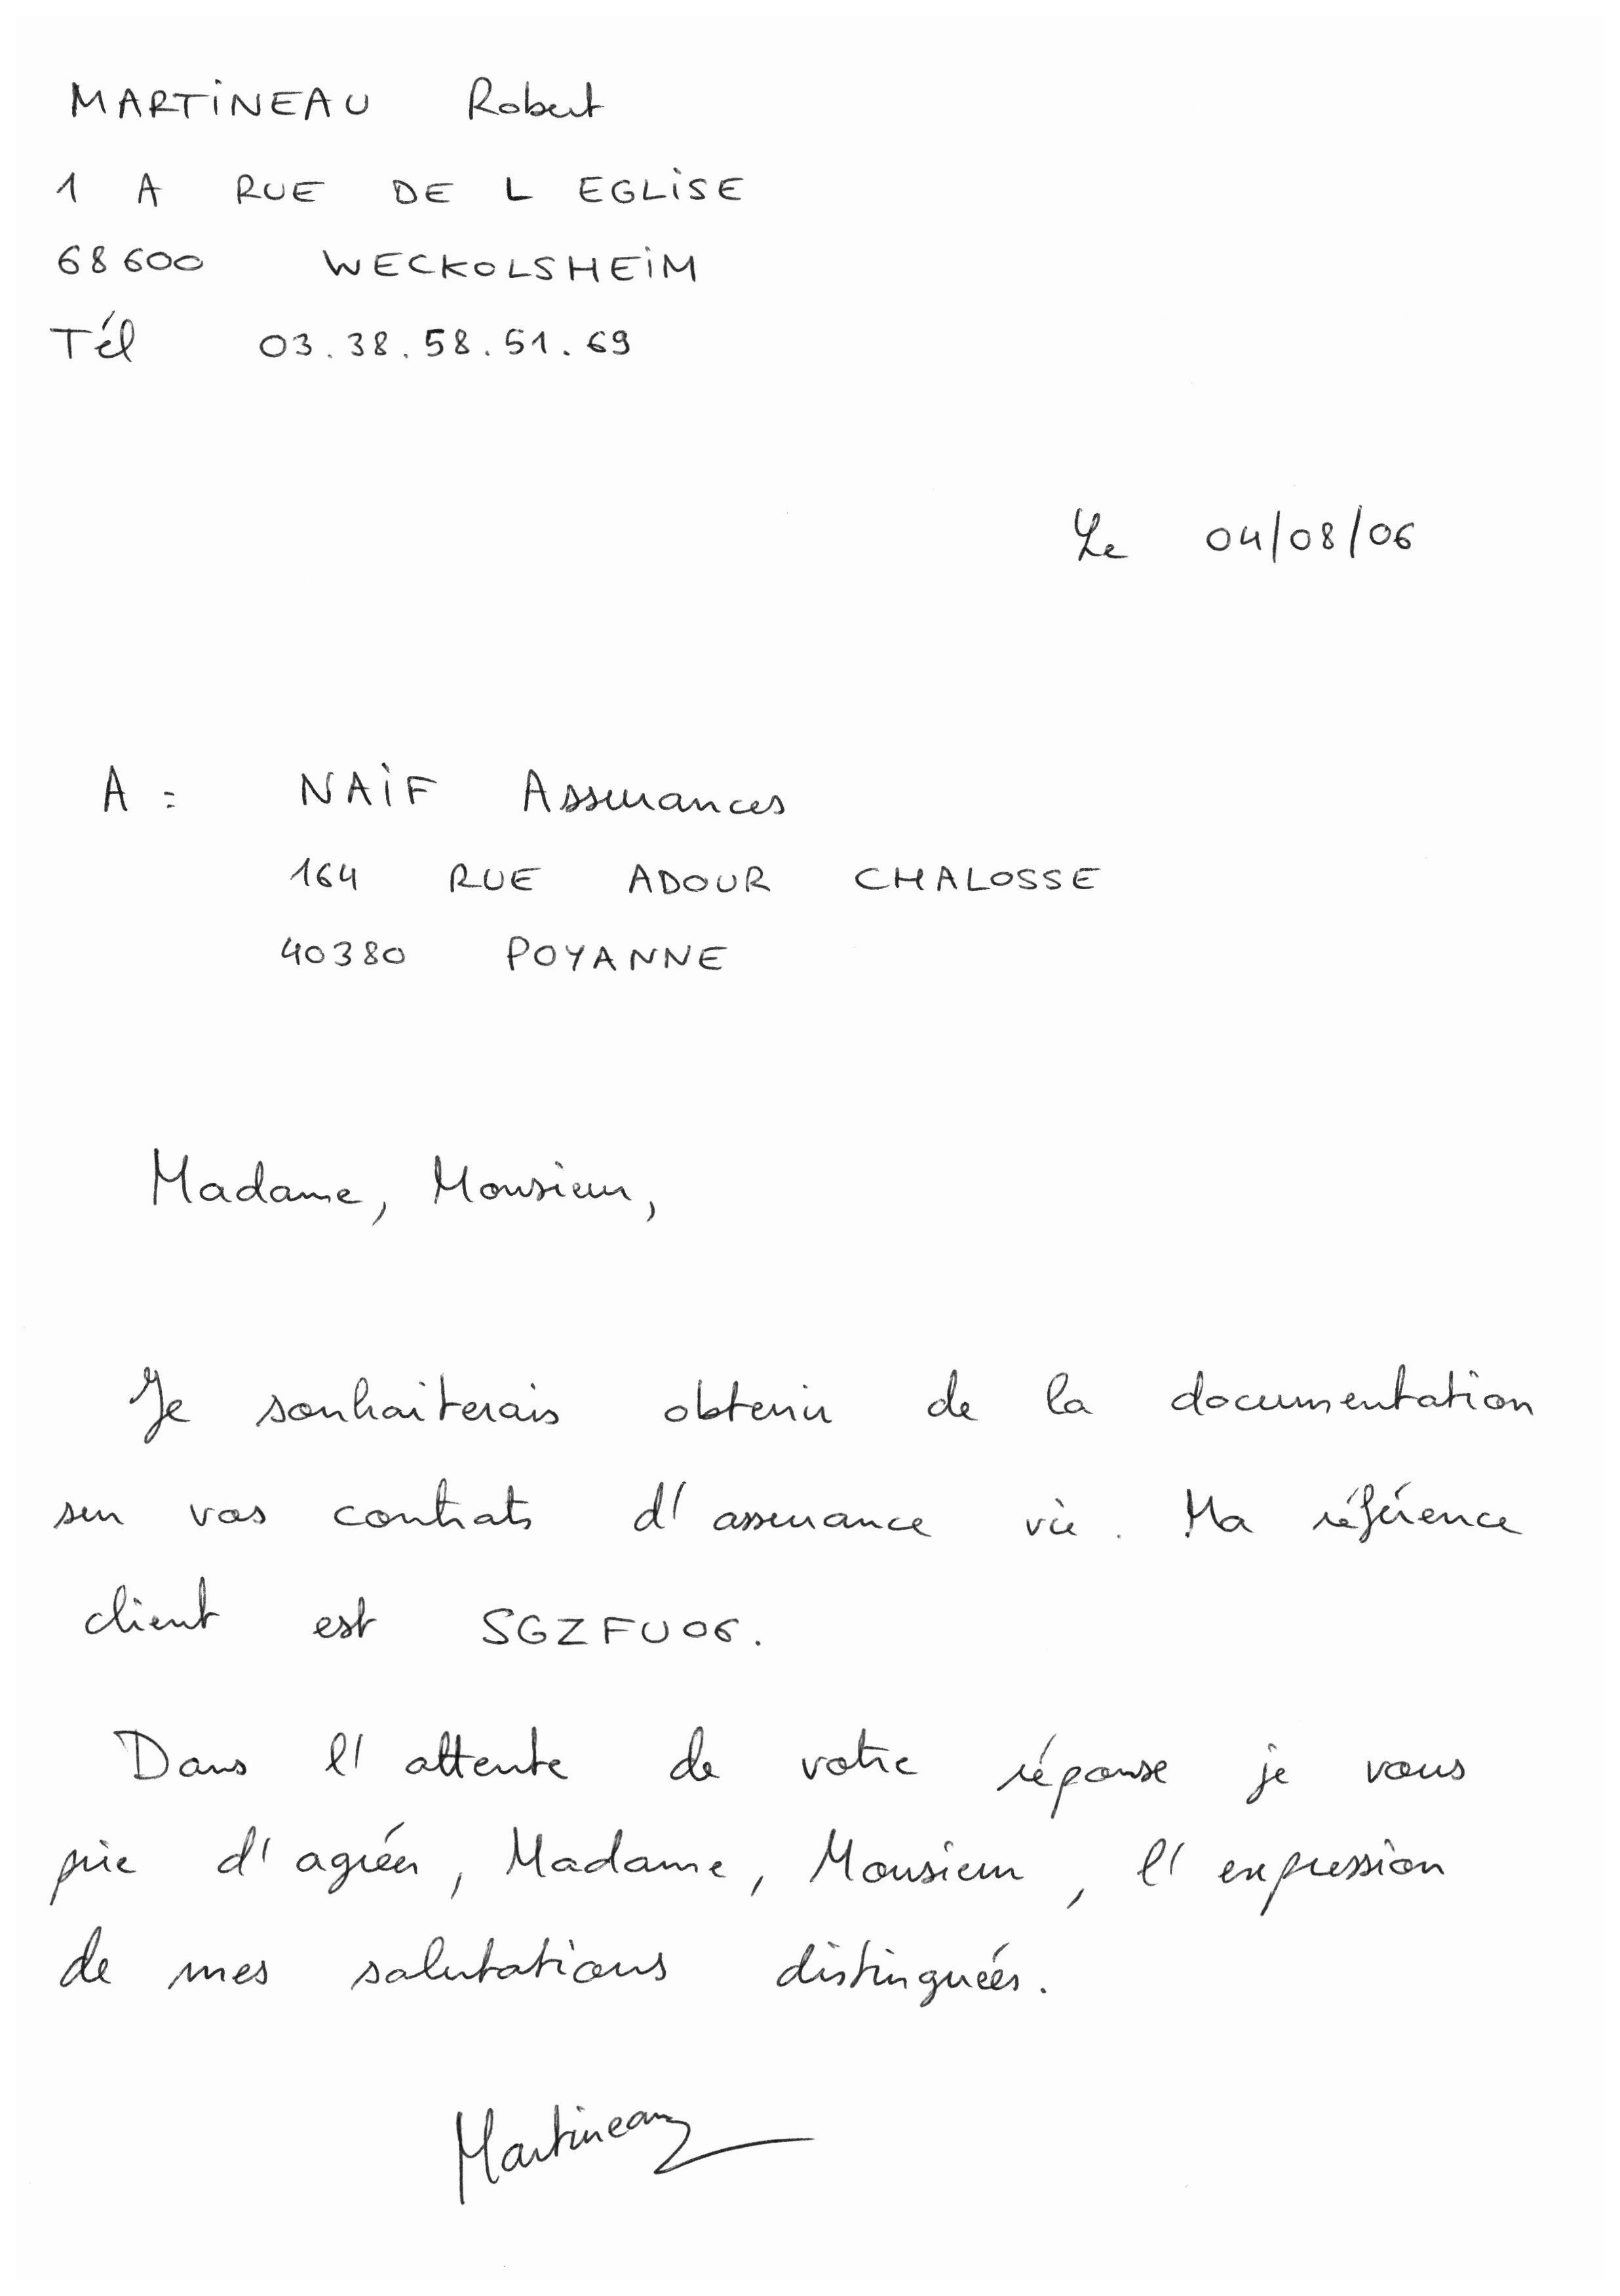 MARTINEAU Robert
1 A RUE DE L EGLISE
68600 WECKOLSHEIM
Tél 03.38.58.51.69
Le 04/08/06
A : NAIF Assurances
164 RUE ADOUR CHALOSSE
40380 POYANNE
Madame, Monsieur,
Je souhaiterais obtenir de la documentation
sur vos contrats d'assurance vie. Ma référence
client est SGZFU06.
Dans l'attente de votre réponse je vous
prie d'agréer, Madame, Monsieur, l'expression
de mes salutations distinguées.
Martineau